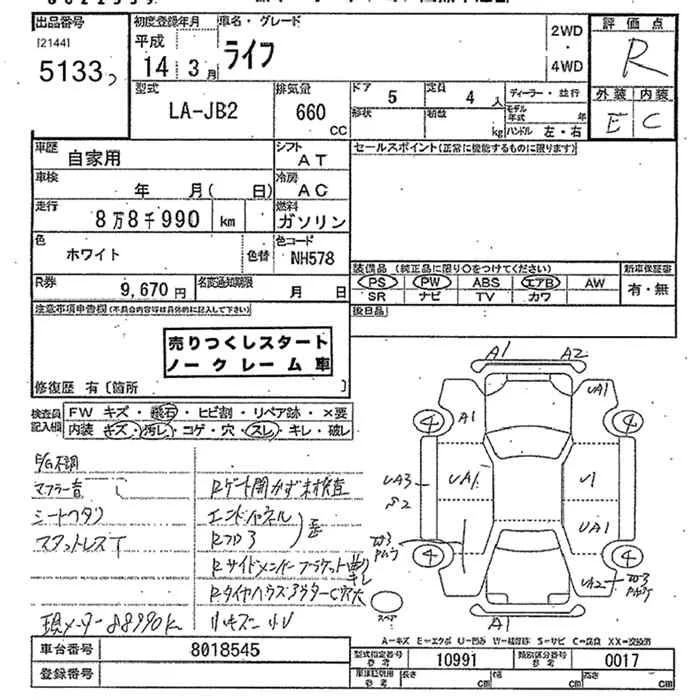 出品番号
[2144]
5133
初度登録年月
平成
14年 3月
車名・グレード
ライフ
2WD
・
4WD
評価点
R
外装 内装
E C
型式
LA-JB2
排気量
660
CC
ドア
5
定員
4人
形状
積数
kg
ディーラー・並行
モデル年式 年
ハンドル 左・右
車歴
自家用
シフト
AT
セールスポイント(正常に機能するものに限ります)
車検
年 月( 日)
冷房
AC
走行
8万8千990 km
燃料
ガソリン
色
ホワイト
色替
色コード
NH578
装備品 (純正品に限り○をつけてください)
PS PW ABS エアB AW
SR ナビ TV カワ
新車保証書
有・無
R券
9,670円
名変通知期限
月 日
後日品
注意事項申告欄(不具合内容等は具体的に記入して下さい)
売りつくしスタート
ノークレーム車
修復歴 有〔箇所 〕
検査員記入欄
FW キズ・飛石・ヒビ割・リペア跡・×要
内装 キズ・汚レ・コゲ・穴・スレ・キレ・破レ
E/G不調
マフラー音
シートヘタリ
スタットレスT
現メーター88990K
Rゲート開かず未検査
エンドパネル
Rフロア
歪
Rサイドメンバーブラケット
Rタイヤハウスアウター C穴大
リモスニ
A1 A2
A1
UA1
4 4
UA3
S2
UA1
U1
UA1
4 4
UA2
A1
スペア
A=キズ E=エクボ U=凹み W=補修跡 S=サビ C=腐食 XX=交換済
車台番号
8018545
登録番号
型式指定番号
参考
10991
類別区分番号
参考
0017
車庫証明用
参考
長さ cm
幅 cm
高さ cm